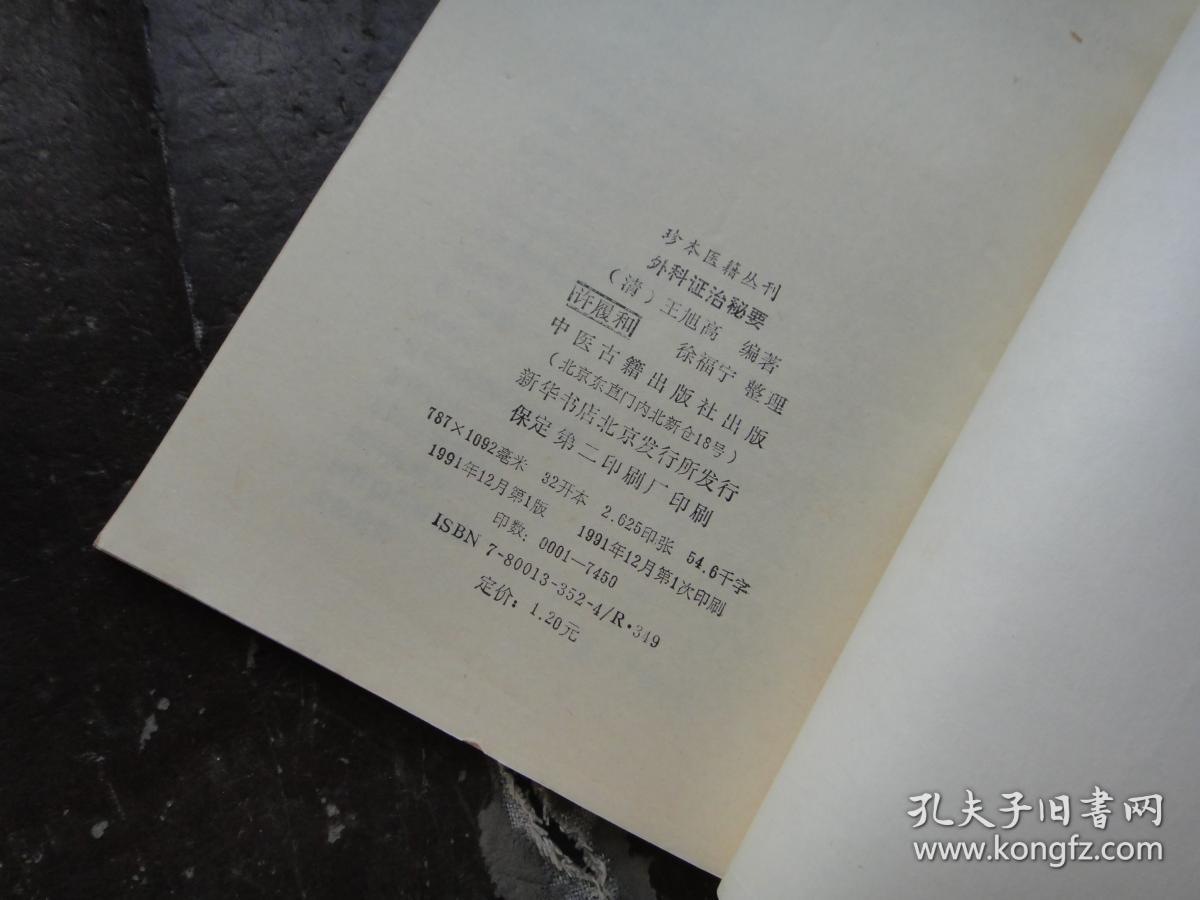 珍本医籍丛刊
外科证治秘要
（清）王旭高 编著
许履和 徐福宁 整理
中医古籍出版社出版
（北京东直门内北新仓18号）
新华书店北京发行所发行
保定第二印刷厂印刷
787×1092毫米 32开本 2.625印张 54.6千字
1991年12月第1版 1991年12月第1次印刷
印数：0001—7450
ISBN 7-80013-352-4/R·349
定价：1.20元
孔夫子旧书网
www.kongfz.com